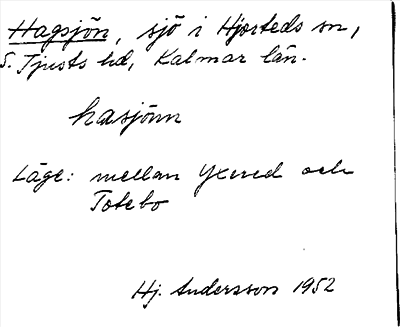 Hagsjön, sjö i Hjorteds sn,
S. Tjusts hd, Kalmar län.
hasjönn
Läge: mellan Yxered och
Totebo
Hj. Andersson 1952